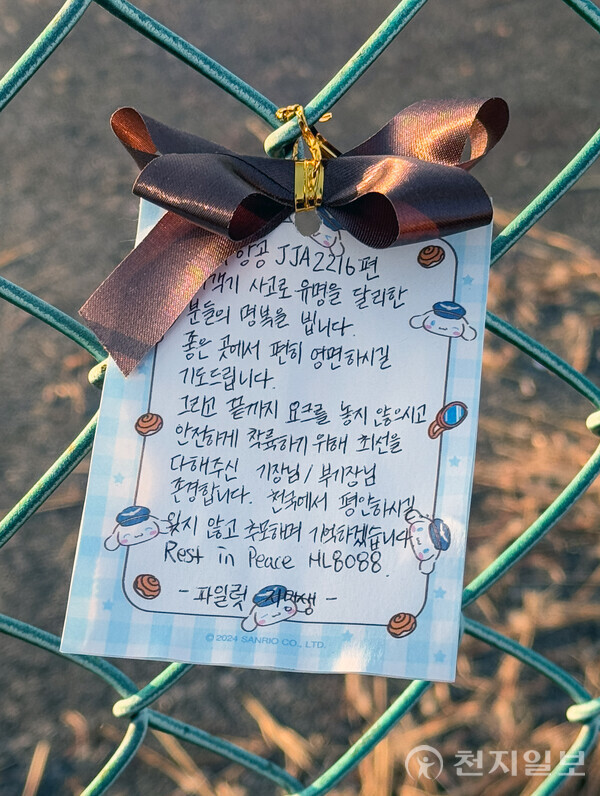 항공 JJA2216편
객기 사고로 유명을 달리한
분들의 명복을 빕니다.
좋은 곳에서 편히 영면하시길
기도드립니다.
그리고 끝까지 요크를 놓지 않으시고
안전하게 착륙하기 위해 최선을
다해주신 기장님/부기장님
존경합니다. 천국에서 평안하시길
잊지 않고 추모하며 기억하겠습니다
Rest in Peace HL8088.
- 파일럿 지망생 -
© 2024 SANRIO CO., LTD.
천지일보